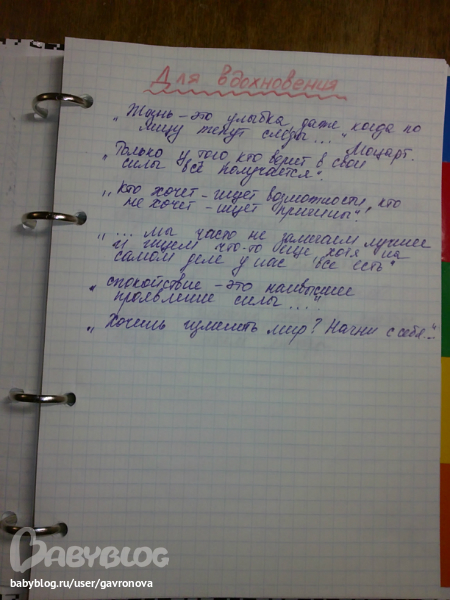 Для вдохновения
„Жизнь – это улыбка, даже когда по
лицу текут слёзы..." Моцарт.
„Только у того, кто верит в свои
силы все получается".
„Кто хочет – ищет возможности, кто
не хочет – ищет причины",
„... мы часто не замечаем лучшее
и ищем что-то еще, хотя на
самом деле у нас все есть"
„спокойствие – это наивысшее
проявление силы...."
„Хочешь изменить мир? Начни с себя..."
BABYBLOG
babyblog.ru/user/gavronova